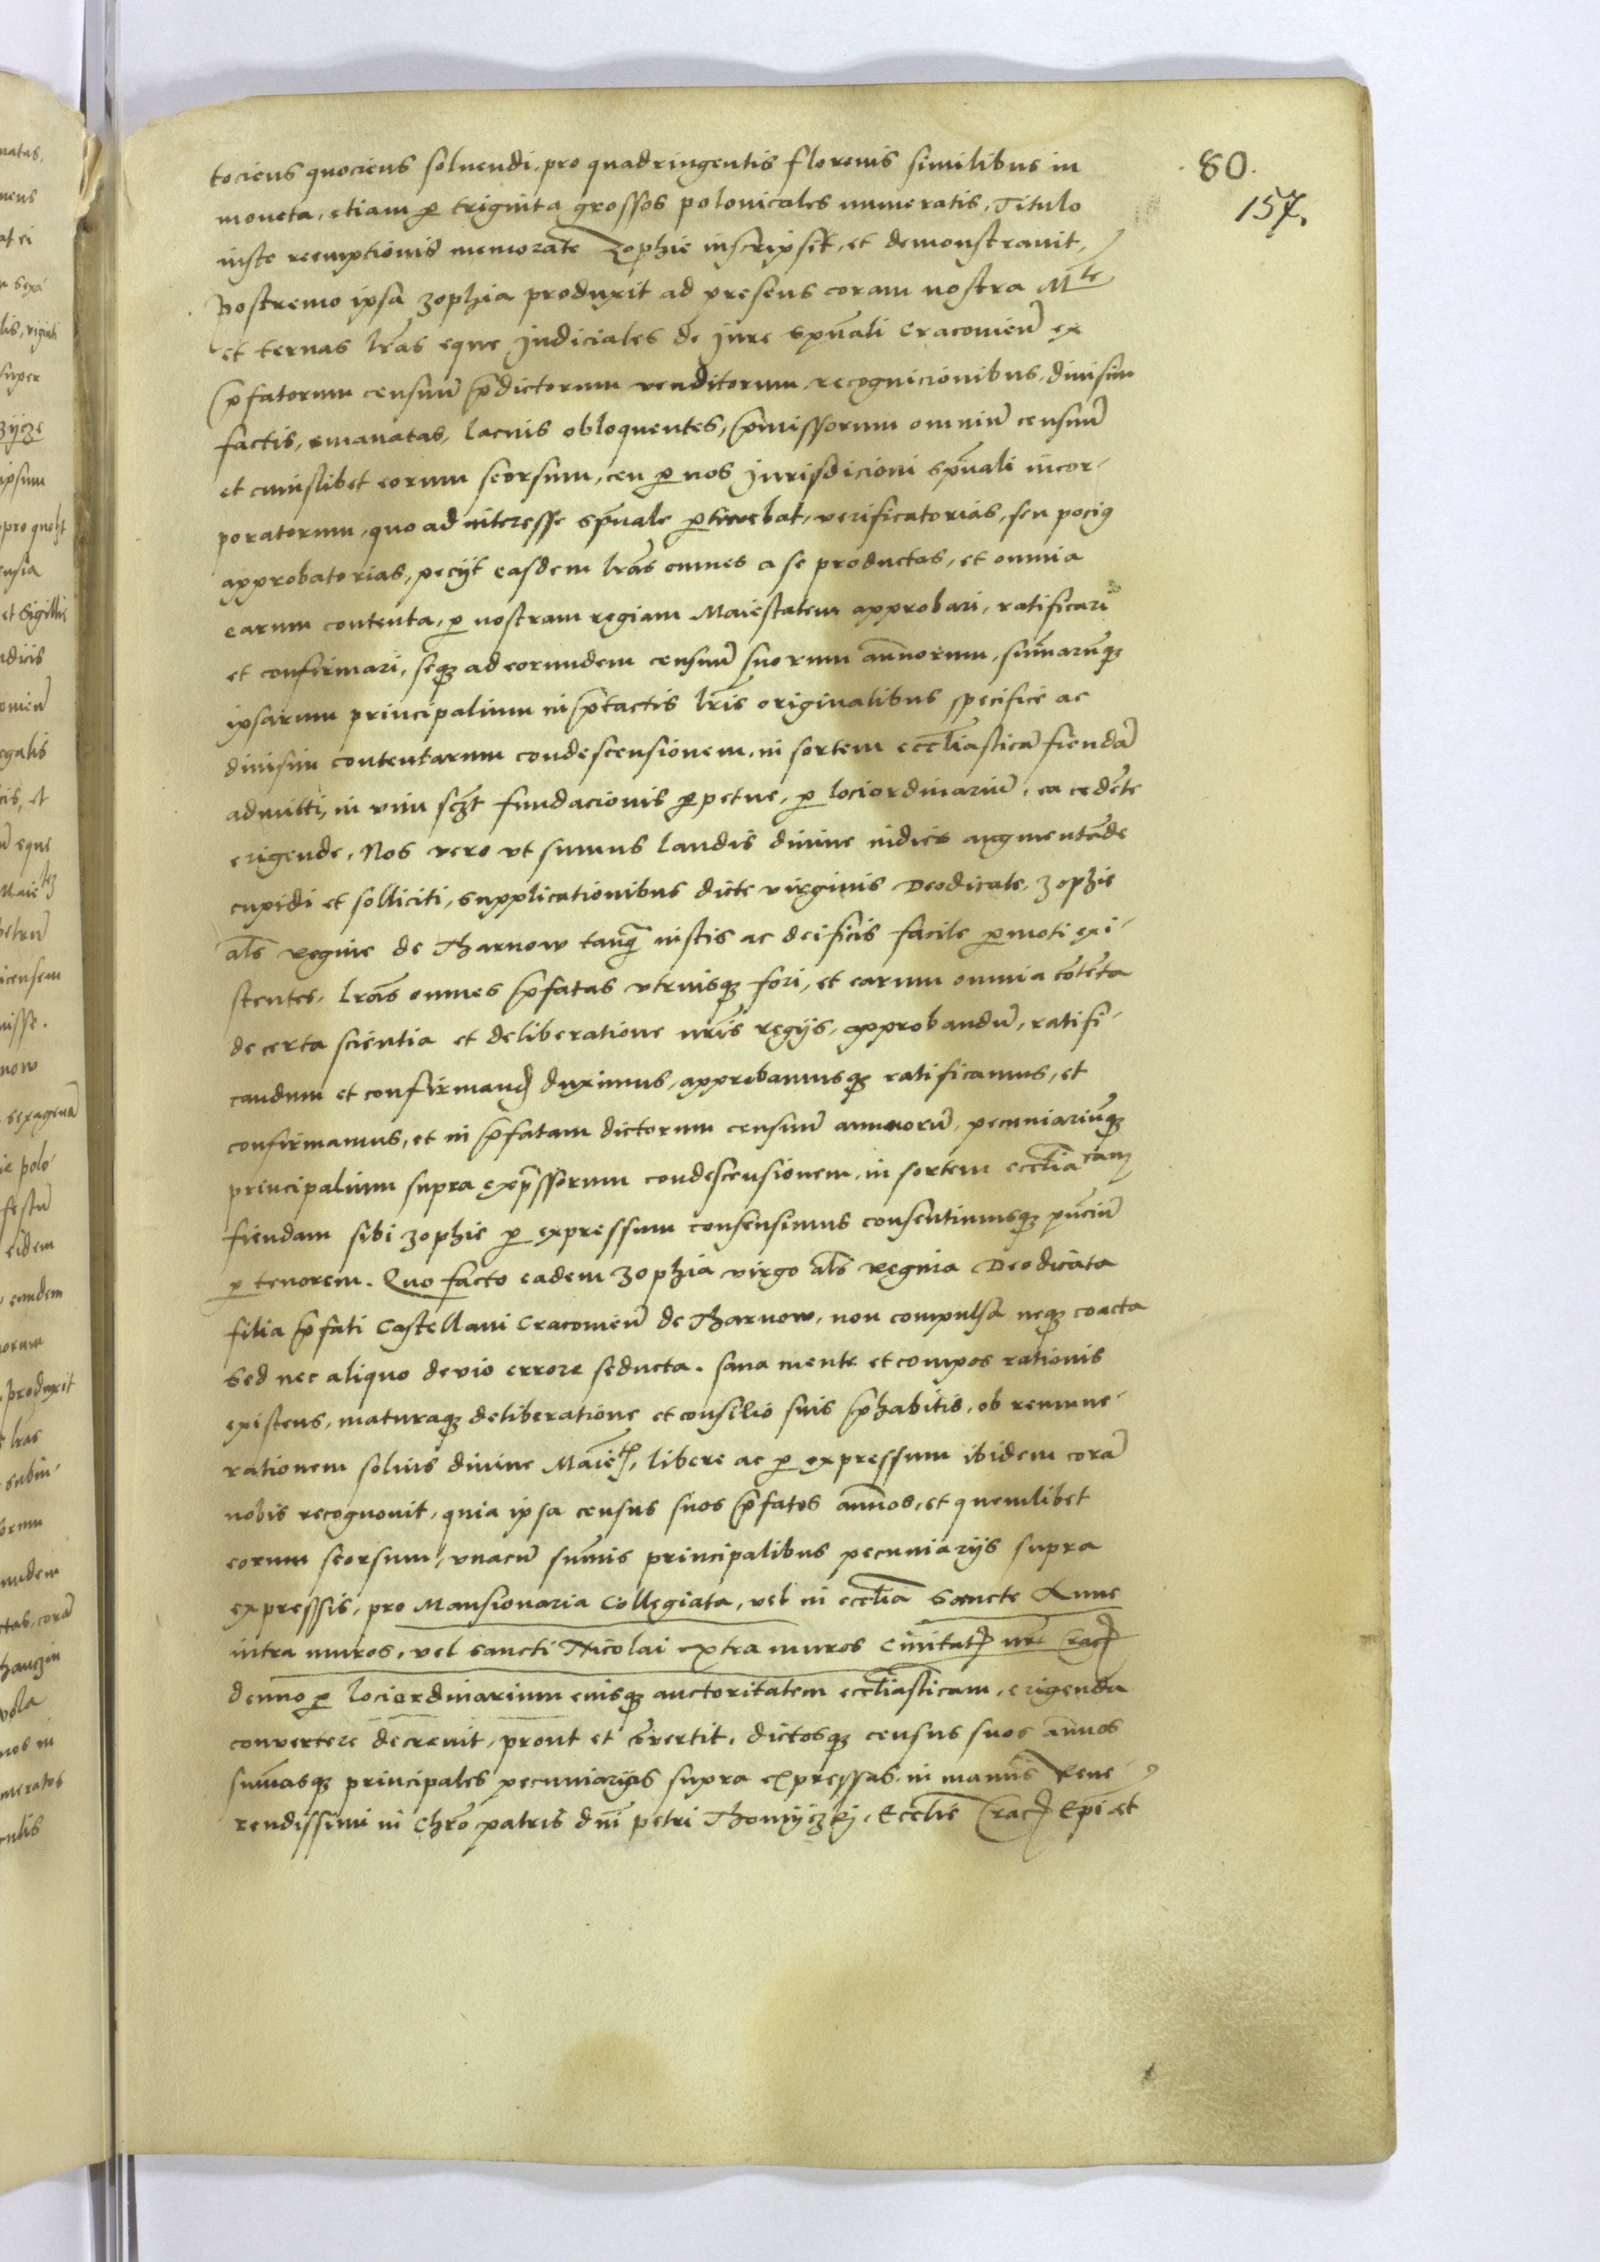 80.
157.
tociens quociens soluendi, pro quadringentis florenis similibus in
moneta, etiam p triginta grossos polonicales numeratis, Titulo
iuste reemptionis memorate Zophie inscripsit, et demonstrauit,
Postremo ipsa Zophia produxit ad presens coram nostra Mte
et ternas lras eque Judiciales de Jure spuali Cracouien ex
pfatorum censuu pdictorum venditorum recognicionibus, diuisim
factis, emanatas, lacius obloquentes, pmissorum omniu censuu
et cuiuslibet eorum seorsum, ceu p nos Jurisdicioni spuali incor-
poratorum, quo ad interesse spuale ptinebat, verificatorias, seu pocius
approbatorias, peciit easdem lras omnes a se productas, et omnia
earum contenta, p nostram regiam Maiestatem approbari, ratificari
et confirmari, seqz ad eorundem censuu suorum annuorum, summarumqz
ipsarum principalium in ptactis lris originalibus specifice ac
diuisim contentarum condescensionem, in sortem eccliasticā fiendā
admitti, in vim sczt fundacionis ppetue, p lociordinariū, ea cedēte
erigende. Nos vero vt sumus laudis diuine indies augmentāde
cupidi et solliciti, supplicationibus dicte virginis Deodicate, Zophie
als Regine de Tharnow tanqz iustis ac deificis facile pmoti exi-
stentes, lras omnes pfatas vtriusqz fori, et earum omnia cotēta
de certa scientia et deliberatione nris regijs, approbandū, ratifi-
candum et confirmand duximus, approbamusqz ratificamus, et
confirmamus, et in pfatam dictorum censuu annuorū, pecuniariūqz
principalium supra expssorum condescensionem, in sortem ecclia cam
fiendam sibi Zophie p expressum consensimus consentimusqz pnciū
p tenorem. Quo facto eadem Zophia virgo als Regina Deodicata
filia pfati Castellani Cracouien de Tharnow, non compulsa neqz coacta
sed nec aliquo deuio errore seducta, sana mente et compos rationis
existens, maturaqz deliberatione et consilio suis phabitis, ob remune-
rationem solius diuine Maietis, libere ac p expressum ibidem corā
nobis recognouit, quia ipsa census suos pfatos annuos, et quemlibet
eorum seorsum, vnacū summis principalibus pecuniarijs supra
expressis, pro Mansionaria Collegiata, vel in ecclia Sancte Anne
intra muros, vel sancti Nicolai extra muros Ciuitatis nre Crac
denuo p lociordinarium eiusqz auctoritatem eccliasticam, erigenda
conuertere decreuit, prout et cōuertit, dictosqz census suos annuos
summasqz principales pecuniarias supra expressas, in manus Reue-
rendissimi in Chro patris dni Petri Thomiczkj, Ecclie Crac Epi et